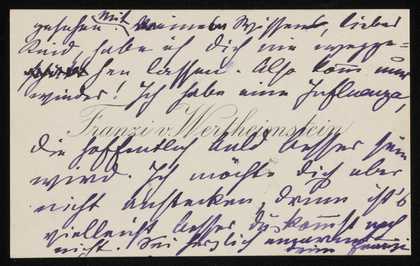 gesehen. Mit meinem Wissen, liebes
Kind, habe ich dich nie wegge-
hen lassen. Also komm nur
wieder! Ich habe eine Influenza,
Franzi v. Wertheimstein
die hoffentlich bald besser sein
wird. Ich möchte dich aber
nicht anstecken, drum ist's
vielleicht besser, du kommst noch
nicht. Sei herzlich umarmt
Franzi